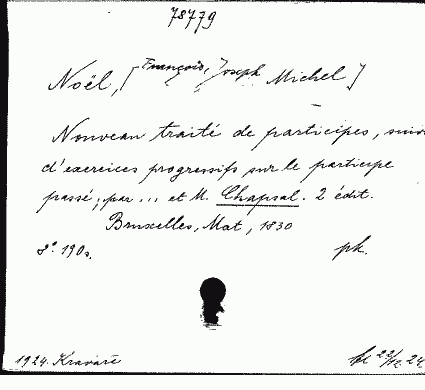 78779
Noël, [François, Joseph Michel]
Nouveau traité de participes, suivi
d'exercices progressifs sur le participe
passé; par ... et M. Chapsal. 2 édit.
Bruxelles, Mat, 1830
8° 190s. pk.
1924. Kravaře 22/12 24